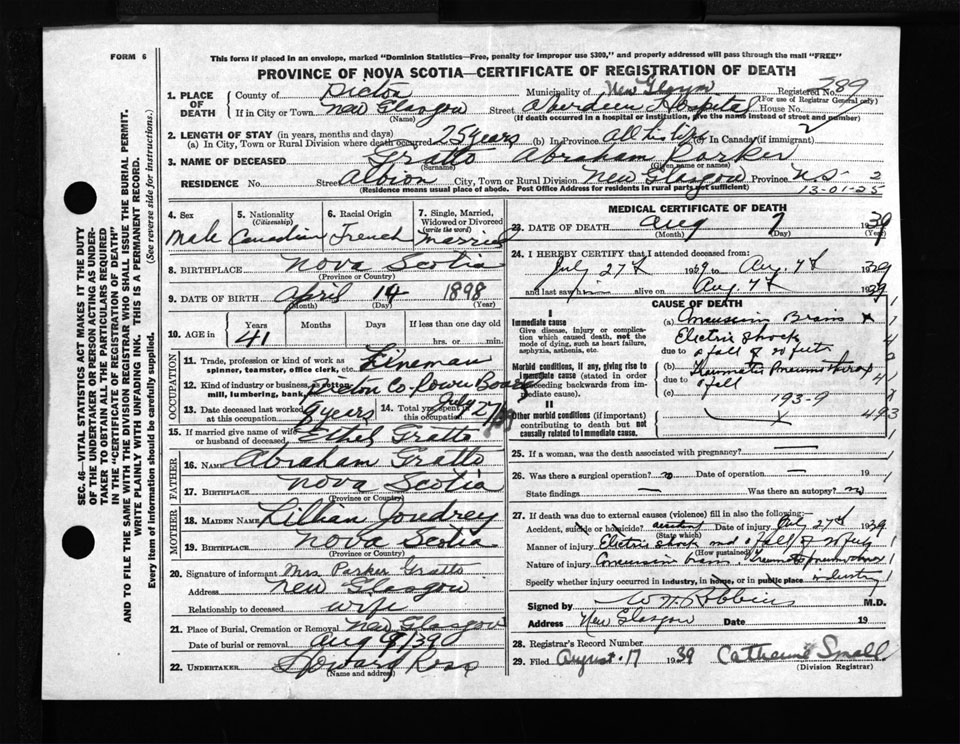 FORM 6
This form if placed in an envelope, marked "Dominion Statistics—Free, penalty for improper use $300," and properly addressed will pass through the mail "FREE"
PROVINCE OF NOVA SCOTIA—CERTIFICATE OF REGISTRATION OF DEATH
Registered No. 789
(For use of Registrar General only)
1. PLACE OF DEATH
County of Pictou Municipality of New Glasgow
If in City or Town New Glasgow Street Aberdeen Hospital House No.
(Name) (If death occurred in a hospital or institution, give the name instead of street and number)
2. LENGTH OF STAY (in years, months and days)
(a) In City, Town or Rural Division where death occurred 25 years (b) In Province All his life (c) In Canada (if immigrant)
3. NAME OF DECEASED Gratto Abraham Parker
(Surname) (Given name or names)
RESIDENCE No. Street Albion City, Town or Rural Division New Glasgow Province N.S. 2
(Residence means usual place of abode. Post Office Address for residents in rural parts not sufficient) 13-01-25
4. Sex Male
5. Nationality (Citizenship) Canadian
6. Racial Origin French
7. Single, Married, Widowed or Divorced (write the word) Married
8. BIRTHPLACE Nova Scotia
(Province or Country)
9. DATE OF BIRTH April 14 1898
(Month) (Day) (Year)
10. AGE in Years Months Days If less than one day old
41 hrs. or min.
OCCUPATION
11. Trade, profession or kind of work as spinner, teamster, office clerk, etc. Lineman
12. Kind of industry or business, as cotton mill, lumbering, bank, Pictou Co. Power Board
13. Date deceased last worked at this occupation 8 years
14. Total yrs. spent in this occupation July 27/39
15. If married give name of wife or husband of deceased Ethel Gratto
FATHER
16. NAME Abraham Gratto
17. BIRTHPLACE Nova Scotia
(Province or Country)
MOTHER
18. MAIDEN NAME Lillian Joudrey
19. BIRTHPLACE Nova Scotia
(Province or Country)
20. Signature of informant Mrs Parker Gratto
Address New Glasgow
Relationship to deceased wife
21. Place of Burial, Cremation or Removal New Glasgow
Date of burial or removal Aug 9/39
22. UNDERTAKER Howard Ross
(Name and address)
MEDICAL CERTIFICATE OF DEATH
23. DATE OF DEATH Aug 7 1939
(Month) (Day) (Year)
24. I HEREBY CERTIFY that I attended deceased from:
July 27th 1939 to Aug. 7th 1939
and last saw him alive on Aug. 7th 1939
CAUSE OF DEATH
I
Immediate cause
Give disease, injury or complication which caused death, not the mode of dying, such as heart failure, asphyxia, asthenia, etc.
(a) Concussion Brain
Electric shock
due to a fall of 20 feet
Morbid conditions, if any, giving rise to immediate cause (stated in order proceeding backwards from immediate cause).
(b) Traumatic Pneumothorax
due to a fall
(c)
193-9
II
Other morbid conditions (if important) contributing to death but not causally related to immediate cause.
493
25. If a woman, was the death associated with pregnancy? —
26. Was there a surgical operation? no Date of operation — 19
State findings — Was there an autopsy? no
27. If death was due to external causes (violence) fill in also the following:—
Accident, suicide or homicide? accident Date of injury July 27th 1939
(State which)
Manner of injury Electric shock and a fall of 20 feet
(How sustained)
Nature of injury Concussion brain, Traumatic pneumothorax
Specify whether injury occurred in industry, in home, or in public place industry
Signed by M.D.
Address New Glasgow Date 19
28. Registrar's Record Number
29. Filed August 17 1939 Catherine Small
(Division Registrar)
SEC. 46—VITAL STATISTICS ACT MAKES IT THE DUTY
OF THE UNDERTAKER OR PERSON ACTING AS UNDER-
TAKER TO OBTAIN ALL THE PARTICULARS REQUIRED
IN THE "CERTIFICATE OF REGISTRATION OF DEATH"
AND TO FILE THE SAME WITH THE DIVISION REGISTRAR WHO SHALL ISSUE THE BURIAL PERMIT.
WRITE PLAINLY WITH UNFADING INK. THIS IS A PERMANENT RECORD.
Every item of information should be carefully supplied. (See reverse side for instructions.)